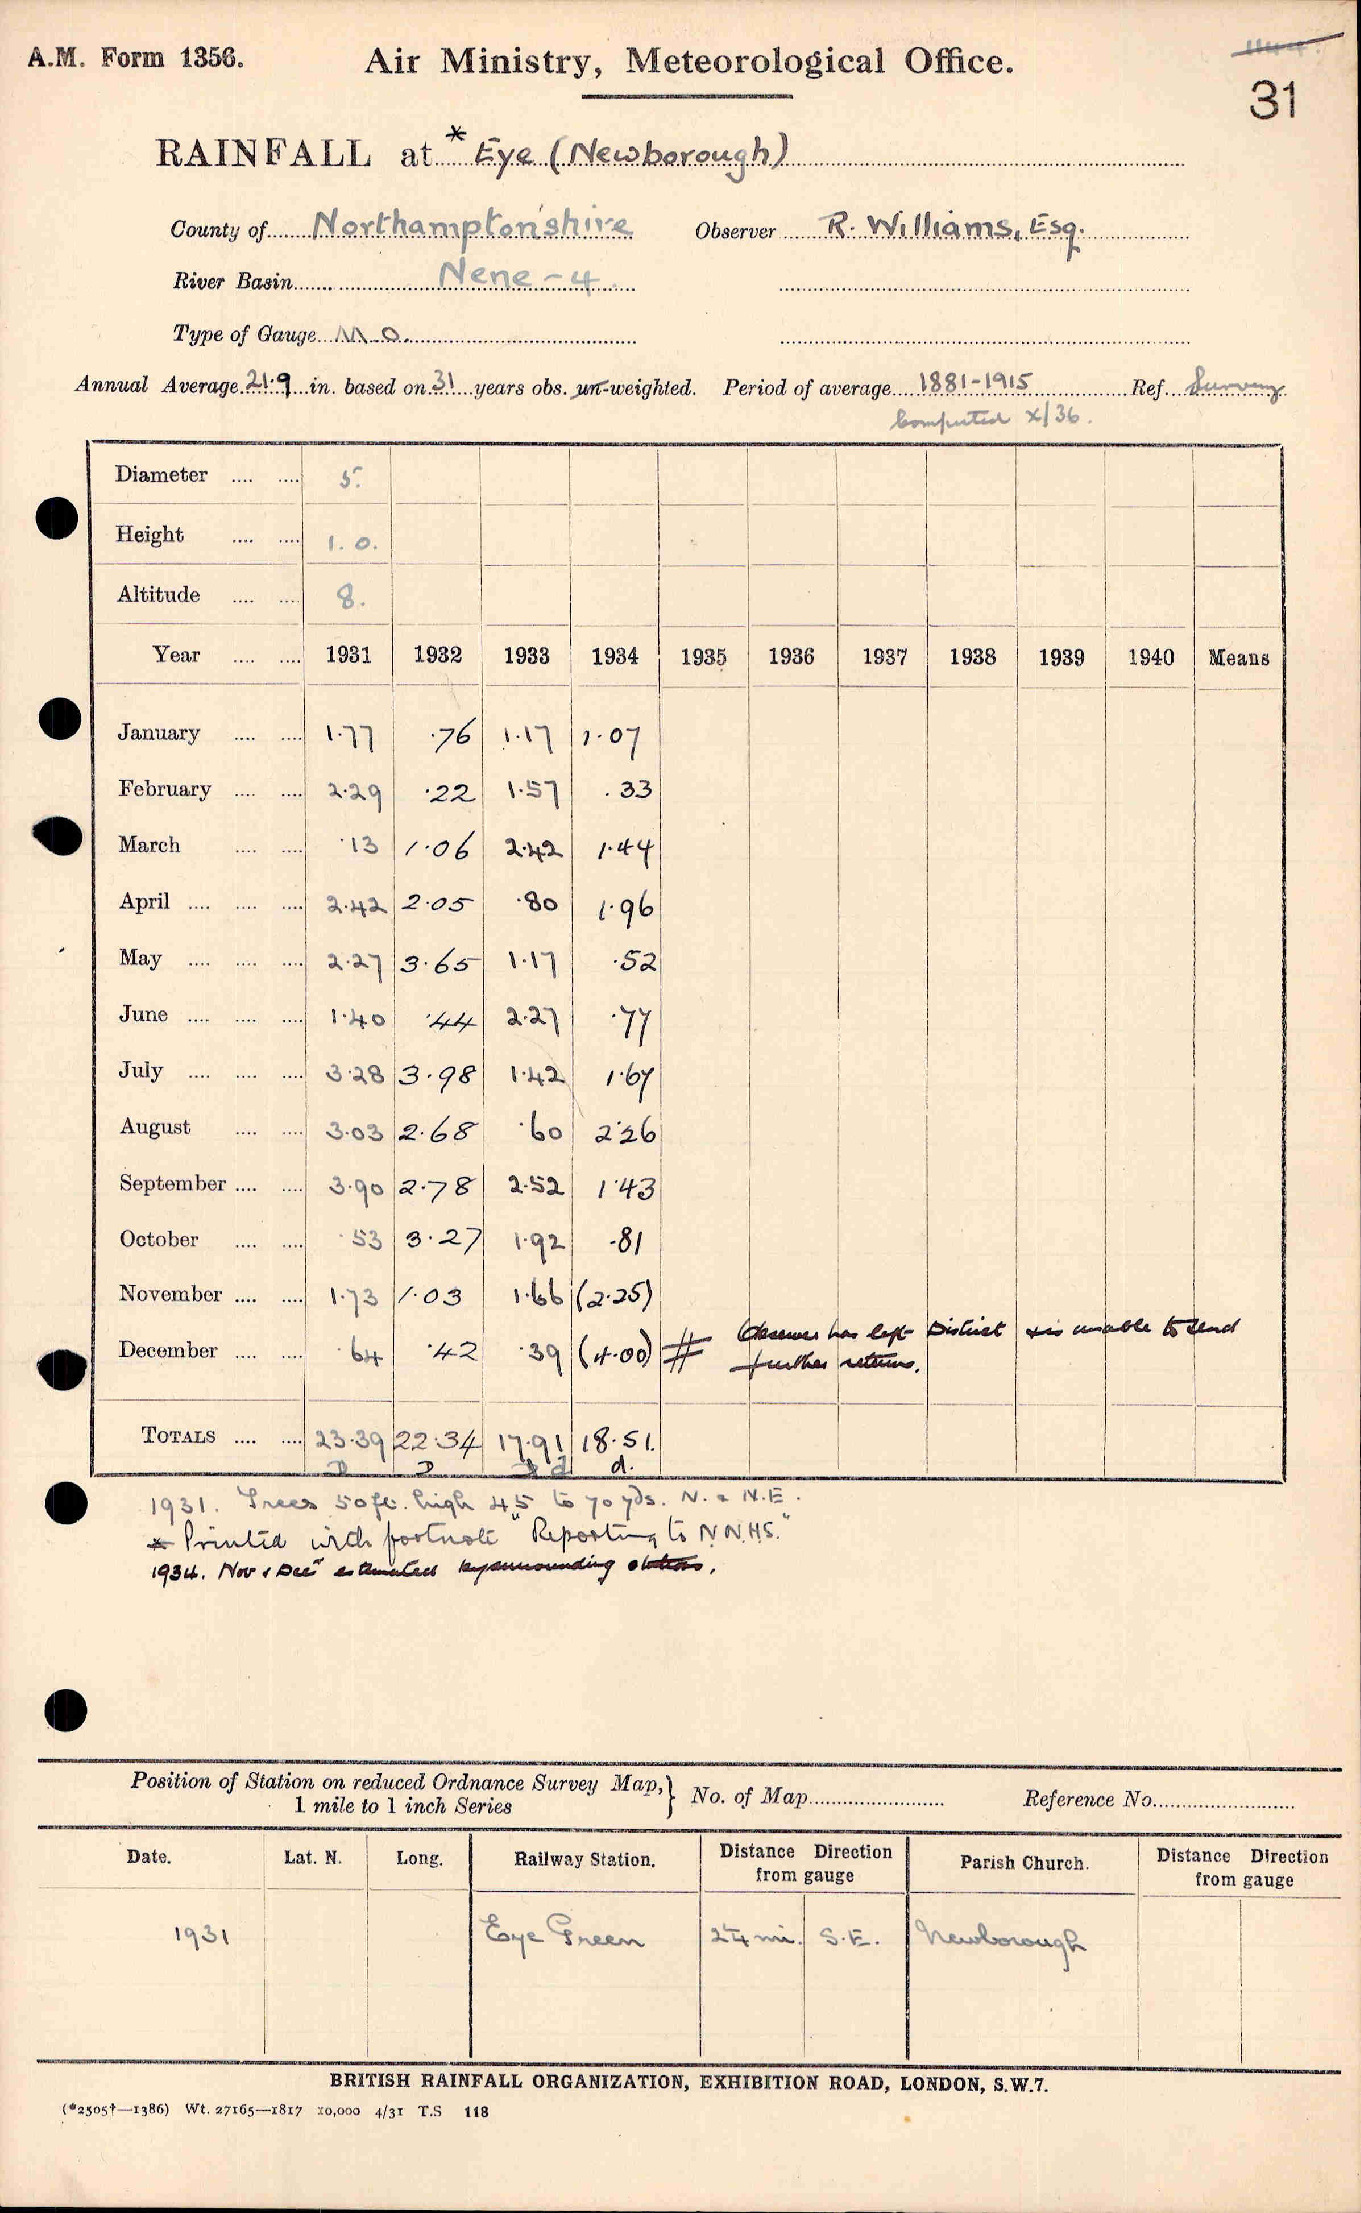 A.M. Form 1356.
Air Ministry, Meteorological Office.
31
RAINFALL at * Eye (Newborough)
County of Northamptonshire Observer R. Williams, Esq.
River Basin Nene - 4.
Type of Gauge M.O.
Annual Average 21.9 in. based on 31 years obs. un-weighted. Period of average 1881-1915 Ref. Survey
Computed X/36.
Diameter .... .... 5.
Height .... .... 1. 0.
Altitude .... .... 8.
Year .... .... 1931 1932 1933 1934 1935 1936 1937 1938 1939 1940 Means
January .... .... 1.77 .76 1.17 1.07
February .... .... 2.29 .22 1.57 .33
March .... .... .13 1.06 2.42 1.44
April .... .... .... 2.42 2.05 .80 1.96
May .... .... .... 2.27 3.65 1.17 .52
June .... .... .... 1.40 .44 2.27 .77
July .... .... .... 3.28 3.98 1.42 1.67
August .... .... 3.03 2.68 .60 2.26
September .... .... 3.90 2.78 2.52 1.43
October .... .... .53 3.27 1.92 .81
November .... .... 1.73 1.03 1.66 (2.25)
December .... .... .64 .42 .39 (4.00) # Observer has left District & is unable to send
further returns.
TOTALS .... .... 23.39 22.34 17.91 18.51.
D D D d d.
1931. Trees 50 ft. high 45 to 70 yds. N. & N.E.
* Printed with footnote "Reporting to N.N.H.S."
1934. Nov & Dec estimated by surrounding stations.
Position of Station on reduced Ordnance Survey Map, } No. of Map Reference No.
1 mile to 1 inch Series
Date. Lat. N. Long. Railway Station. Distance Direction from gauge Parish Church. Distance Direction from gauge
1931 Eye Green 2¼ mi. S.E. Newborough
BRITISH RAINFALL ORGANIZATION, EXHIBITION ROAD, LONDON, S.W.7.
(*2505†—1386) Wt. 27165—1817 10,000 4/31 T.S 118